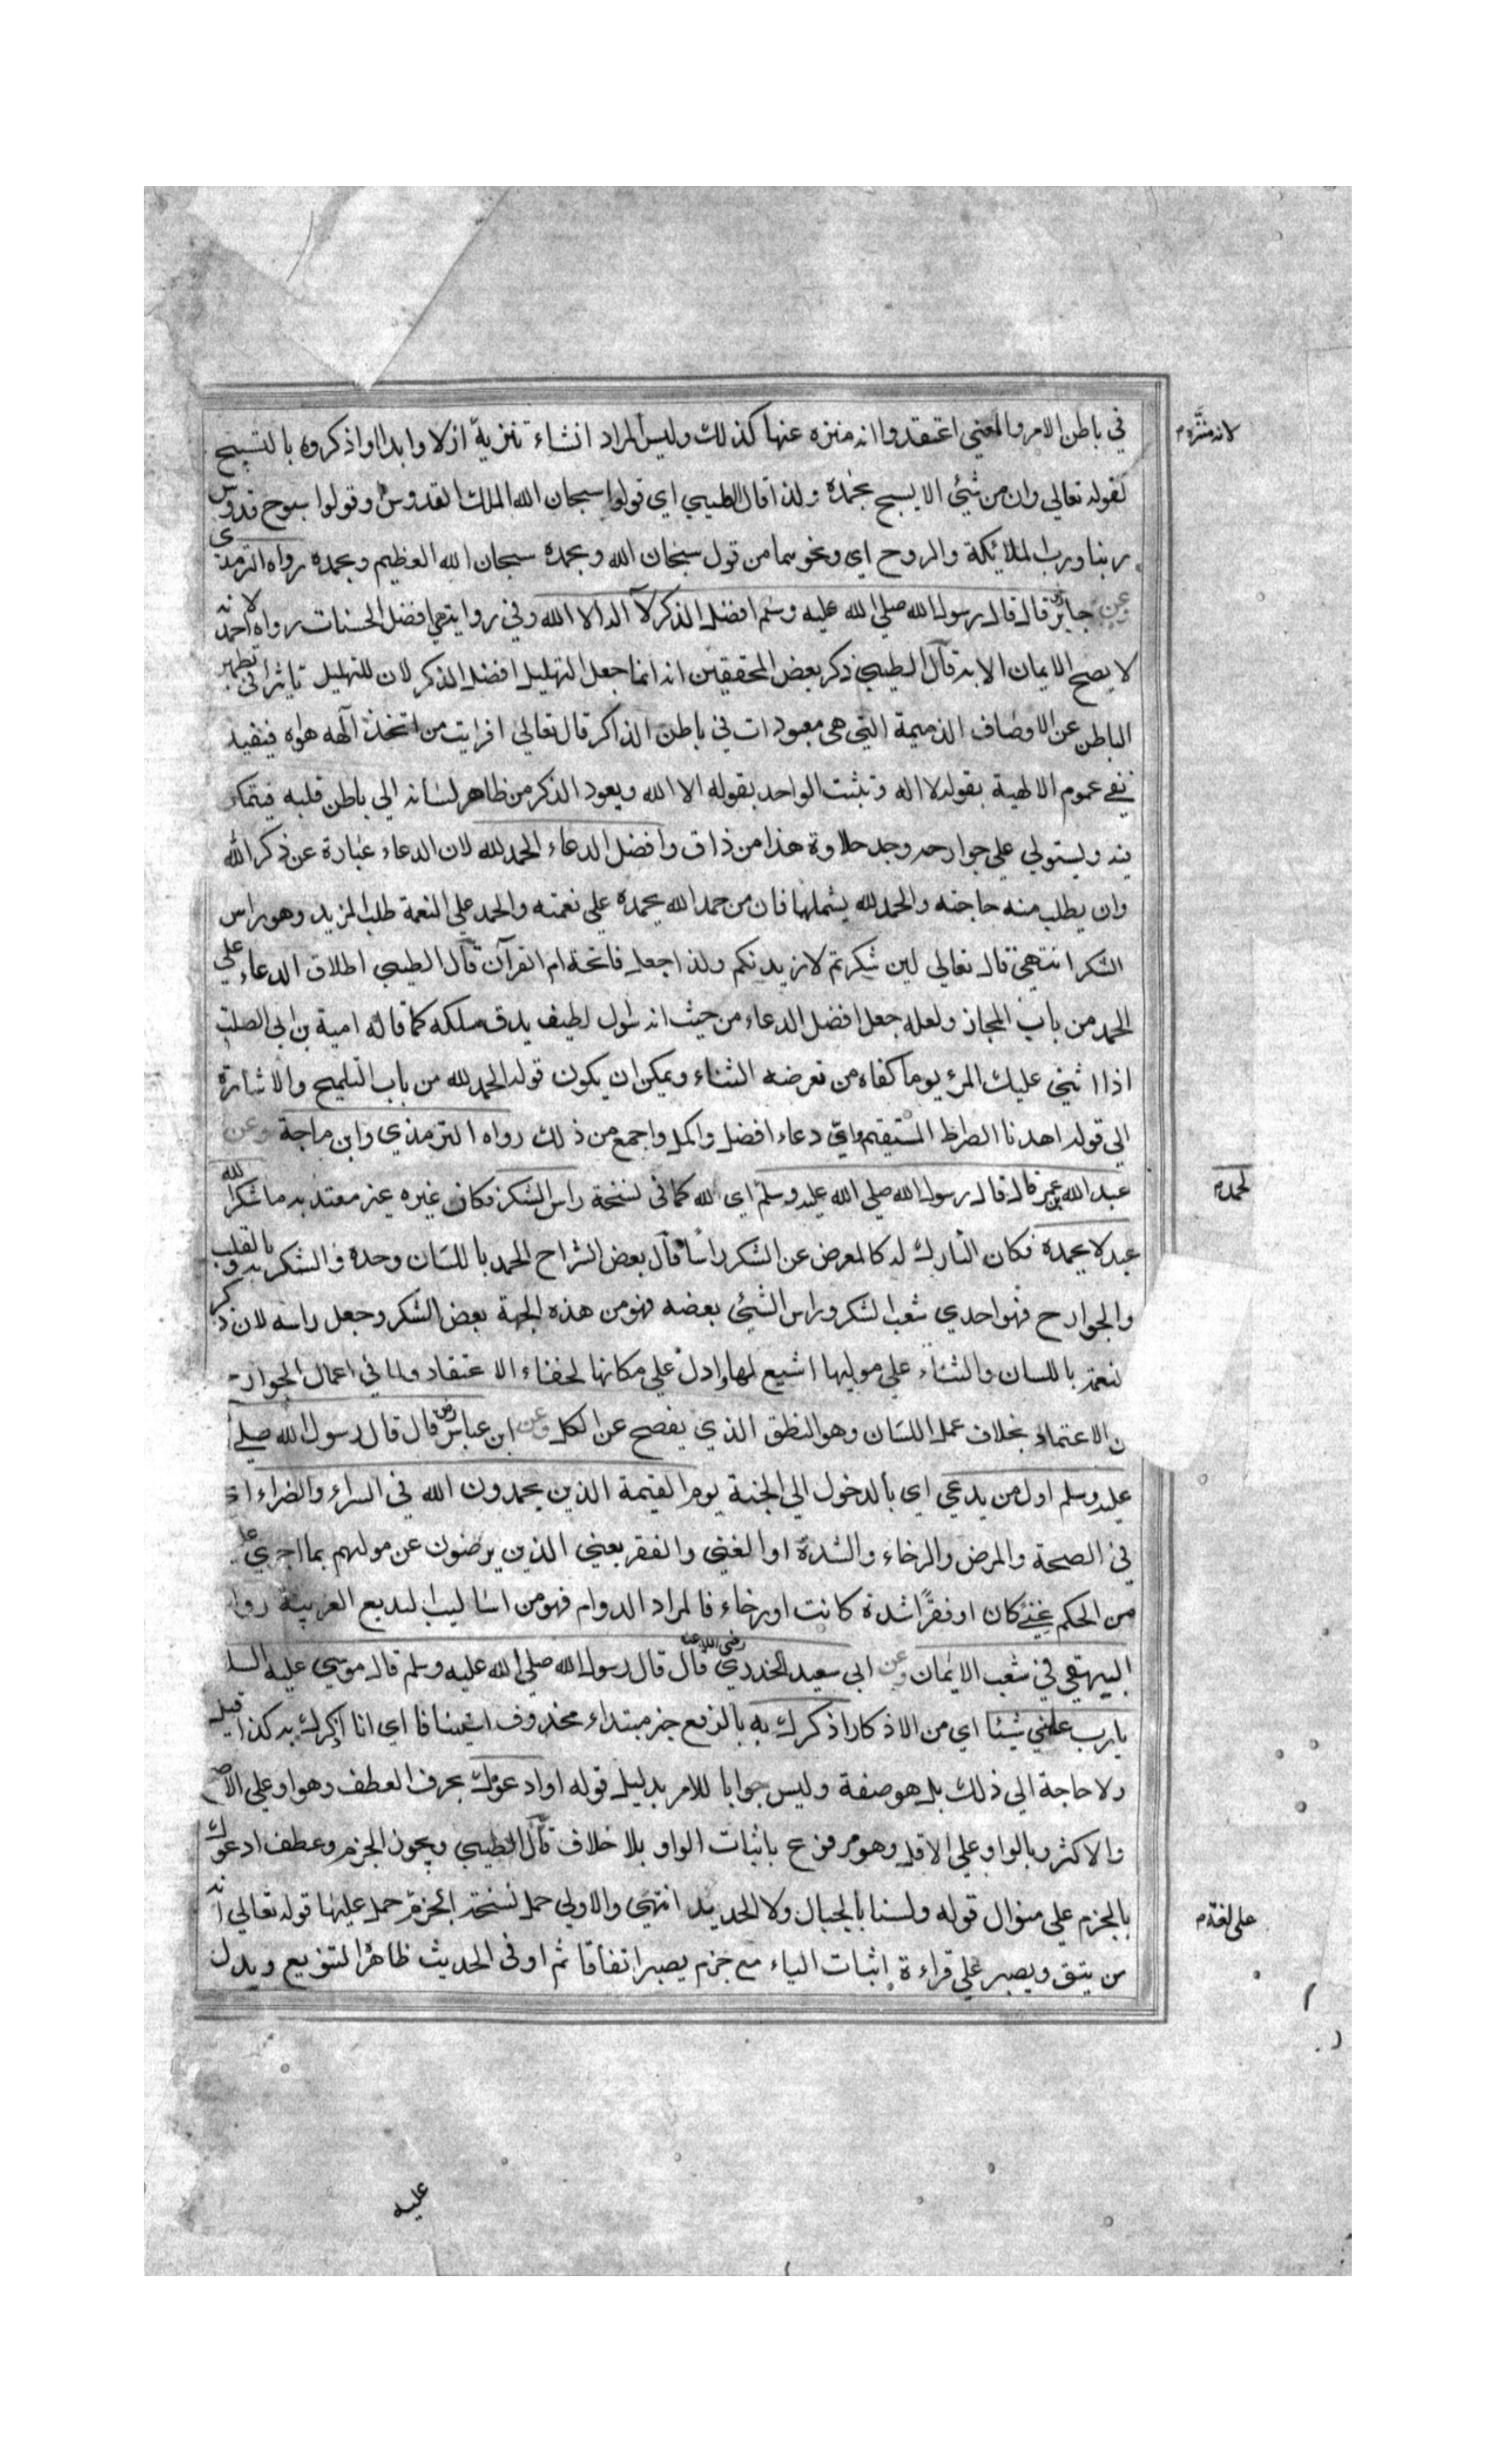 في باطن الامر والمعني اعتقدوا انه منزه عنها كذلك وليس المراد انشاء تنزيه ازلا وابدا او اذكروه بالتسبيح
لانه منزه م
لقوله تعالي وان من شئي الا يسبح بحمده ولذا قال الطيبي اي قولوا سبحان الله الملك القدوس وقولوا سبوح قدوس
ربنا ورب الملائكة والروح اي ونحوهما من قول سبحان الله وبحمده سبحان الله العظيم وبحمده رواه الترمذي
وعن جابر قال قال رسول الله صلي الله عليه وسلم افضل الذكر لا اله الا الله وفي رواية هي افضل الحسنات رواه احمد لانه
لا يصح الايمان الا به قال الطيبي ذكر بعض المحققين انه انما جعل التهليل افضل الذكر لان للتهليل تاثيرا في تطهير
الباطن عن الاوصاف الذميمة التي هي معبودات في باطن الذاكر قال تعالي افرايت من اتخذ آلهه هواه فيفيد
نفي عموم الالهية بقوله لا اله وتثبت الواحد بقوله الا الله ويعود الذكر من ظاهر لسانه الي باطن قلبه فيتمكن
فيه ويستولي علي جوارحه وجد حلاوة هذا من ذاق وافضل الدعاء الحمد لله لان الدعاء عبارة عن ذكر الله
وان يطلب منه حاجته والحمد لله يشملها فان من حمد الله يحمده علي نعمته والحمد علي النعمة طلب المزيد وهو راس
الشكر انتهي قال تعالي لين شكرتم لازيدنكم ولذا جعل فاتحة ام القرآن قال الطيبي اطلاق الدعاء علي
الحمد من باب المجاز ولعله جعل افضل الدعاء من حيث انه سوال لطيف يدق مسلكه كما قاله امية بن ابي الصلت
اذا اثني عليك المرء يوما كفاه من تعرضه الثناء ويمكن ان يكون قوله الحمد لله من باب التلميح والاشارة
الي قوله اهدنا الصراط المستقيم واي دعاء افضل واكمل واجمع من ذلك رواه الترمذي وابن ماجة وعن
عبد الله بن عمر قال قال رسول الله صلي الله عليه وسلم اي لله كما في نسخة راس الشكر فكان غيره غير معتد به ما شكر الله
الحمد م
عبد لا يحمده فكان التارك له كالمعرض عن الشكر راسا قال بعض الشراح الحمد باللسان وحده والشكر به وبالقلب
والجوارح فهو احدي شعب الشكر وراس الشيئ بعضه فهو من هذه الجهة بعض الشكر وجعل راسه لان ذكر
النعمة باللسان والثناء علي موليها اشيع لها وادل علي مكانها لخفاء الاعتقاد ولما في اعمال الجوارح
من الاعتماد بخلاف عمل اللسان وهو النطق الذي يفصح عن الكل وعن ابن عباس رض قال قال رسول الله صلي
عليه وسلم اول من يدعي اي بالدخول الي الجنة يوم القيمة الذين يحمدون الله في السراء والضراء اي
في الصحة والمرض والرخاء والشدة او الغني والفقر يعني الذين يرضون عن مولهم بما اجري عليهم
من الحكم غني كان او فقرا شدة كانت او رخاء فالمراد الدوام فهو من اساليب البديع الغريبة رواه
البيهقي في شعب الايمان وعن ابي سعيد الخدري رضي الله عنه قال قال رسول الله صلي الله عليه وسلم قال موسي عليه السلا
يا رب علمني شيئا اي من الاذكار اذكرك به بالرفع خبر مبتداء محذوف استينافا اي انا اذكرك به كذا قيل
ولا حاجة الي ذلك بل هو صفة وليس جوابا للامر بدليل قوله او ادعوك بحرف العطف وهو او علي الاصح
والاكثر وبالواو علي الاقل وهو مرفوع باثبات الواو بلا خلاف قال الطيبي ويجوز الجزم وعطف ادعوك
بالجزم علي منوال قوله ولسنا بالجبال ولا الحديد انتهي والاولي حمل نسخة الجزم حمل عليها قوله تعالي انه
علي لغة م
من يتق ويصبر علي قراءة اثبات الياء مع جزم يصبر اتفاقا ثم او في الحديث ظاهر التنويع ويدل
عليه